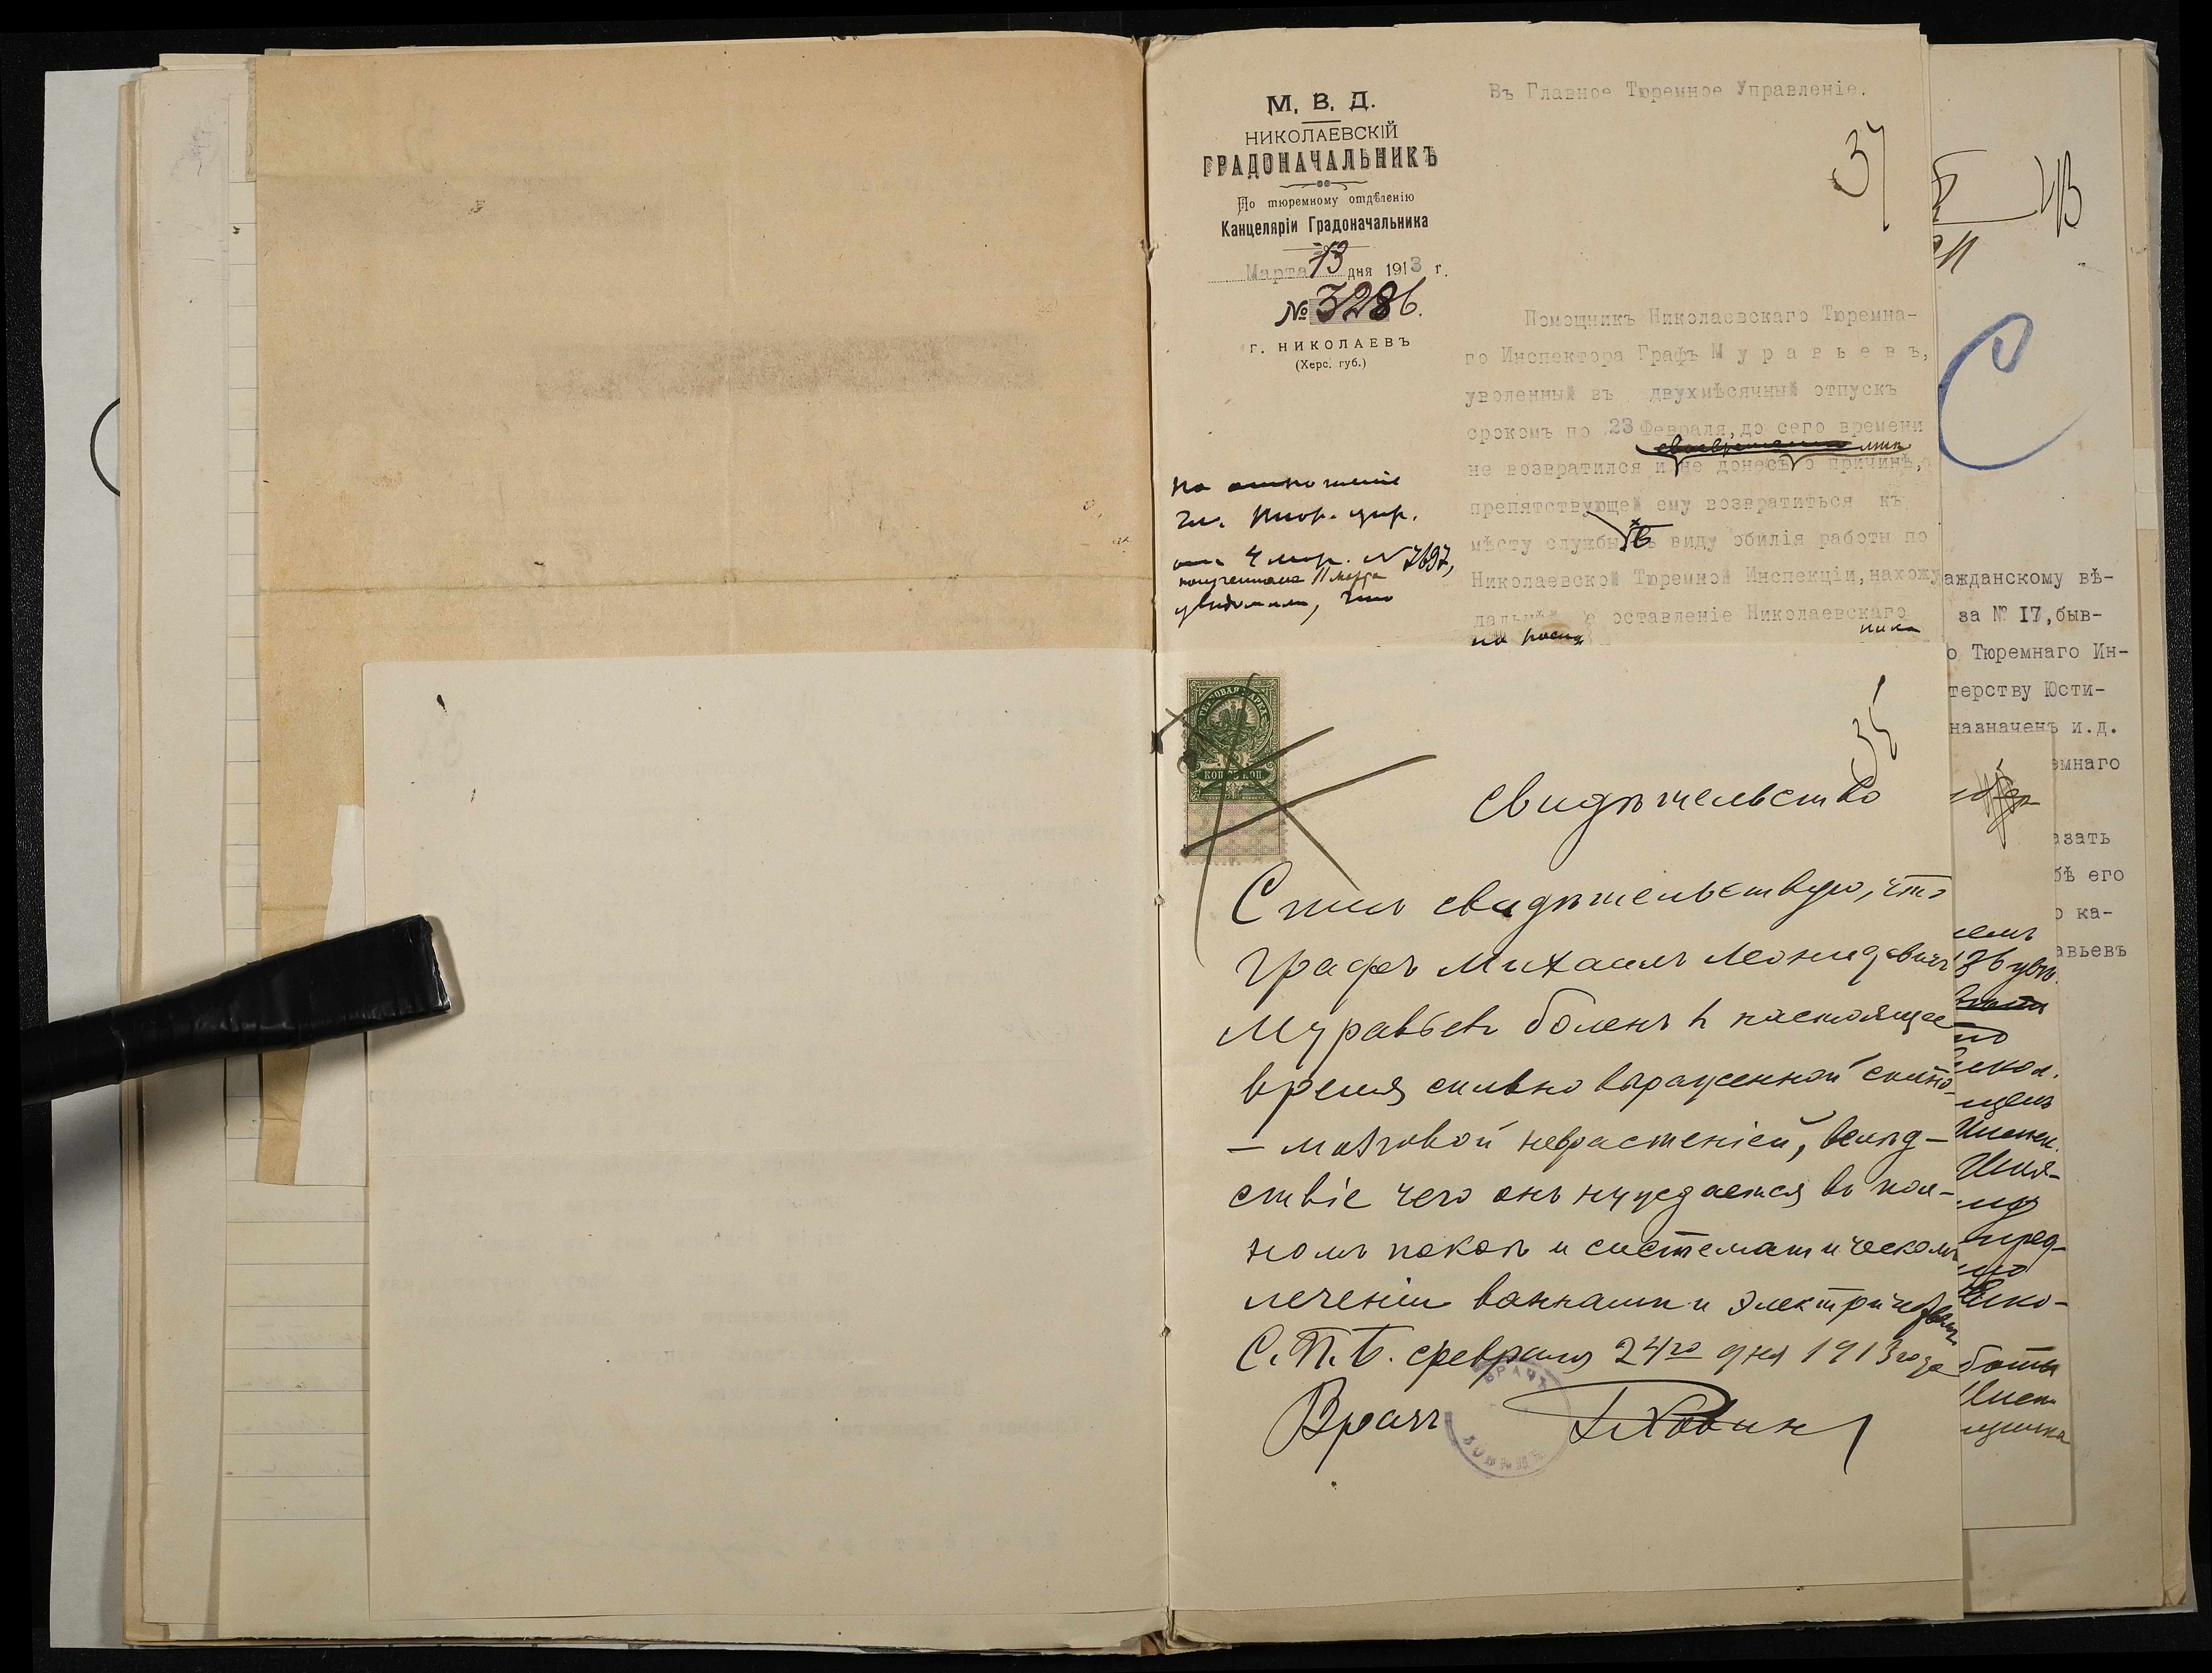 М. В. Д.
НИКОЛАЕВСКІЙ
ГРАДОНАЧАЛЬНИКЪ
По тюремному отдѣленію
Канцеляріи Градоначальника
Марта 13 дня 1913 г.
№ 3286.
г. НИКОЛАЕВЪ
(Херс. губ.)
Въ Главное Тюремное Управленіе.
37
Помощникъ Николаевскаго Тюремна-
го Инспектора Графъ Муравьевъ,
уволенный въ двухмѣсячный отпускъ
срокомъ по 23 Февраля, до сего времени
не возвратился и не донесъ о причинѣ,
препятствующей ему возвратиться къ
мѣсту службы въ виду обилія работы по
Николаевской Тюремной Инспекціи, нахожу
оставленіе Николаевскаго
На отношеніе
Гл. Тюр. упр.
от 4 мар. № 7697,
полученное 11 марта
увѣдомляю, что
35
КОП 75 КОП
Свидѣтельство
Симъ свидѣтельствую, что
графъ Михаилъ Леонидовичъ
Муравьевъ боленъ въ настоящее
время сильно выраженной спино-
-мозговой неврастеніей, вслѣд-
ствіе чего онъ нуждается въ пол-
номъ покоѣ и систематическомъ
леченіи ваннами и электричествомъ
С.П.Б. февраля 24го дня 1913 года
Врачъ
ВРАЧЪ
ажданскому вѣ-
за № 17, быв-
о Тюремнаго Ин-
терству Юсти-
назначенъ и.д.
емнаго
азать
бѣ его
о ка-
авьевъ